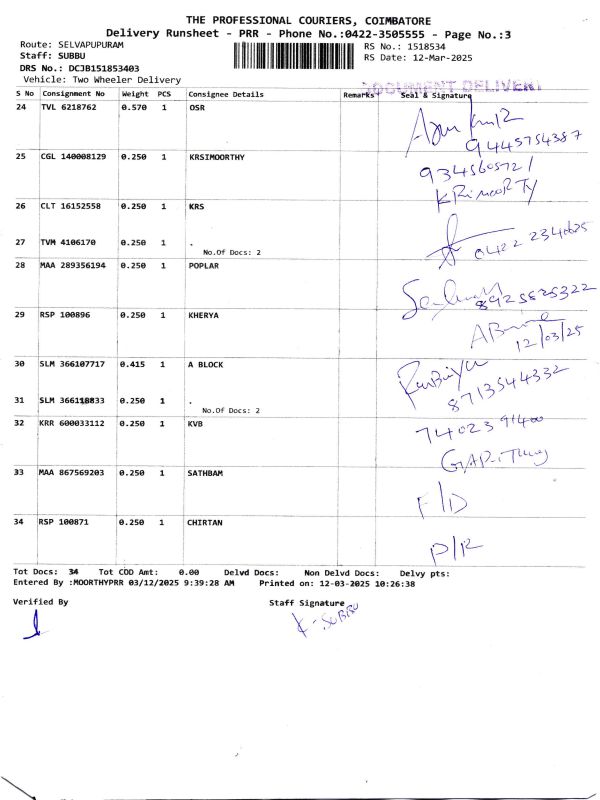 THE PROFESSIONAL COURIERS, COIMBATORE
Delivery Runsheet - PRR - Phone No.:0422-3505555 - Page No.:3
Route: SELVAPUPURAM
RS No.: 1518534
Staff: SUBBU
RS Date: 12-Mar-2025
DRS No.: DCJB151853403
Vehicle: Two Wheeler Delivery
DOCUMENT DELIVERY
S No Consignment No Weight PCS Consignee Details Remarks Seal & Signature
24 TVL 6218762 0.570 1 OSR
9445754387
25 CGL 140008129 0.250 1 KRSIMOORTHY
9345605721
KRimooRTy
26 CLT 16152558 0.250 1 KRS
27 TVM 4106170 0.250 1 . 0422 2340625
No.Of Docs: 2
28 MAA 289356194 0.250 1 POPLAR
8925825322
29 RSP 100896 0.250 1 KHERYA
12/03/25
30 SLM 366107717 0.415 1 A BLOCK
8713544332
31 SLM 366118833 0.250 1 .
No.Of Docs: 2
32 KRR 600033112 0.250 1 KVB
7402391400
33 MAA 867569203 0.250 1 SATHBAM
F/D
34 RSP 100871 0.250 1 CHIRTAN
P/R
Tot Docs: 34 Tot COD Amt: 0.00 Delvd Docs: Non Delvd Docs: Delvy pts:
Entered By :MOORTHYPRR 03/12/2025 9:39:28 AM Printed on: 12-03-2025 10:26:38
Verified By Staff Signature
K-SUBBU